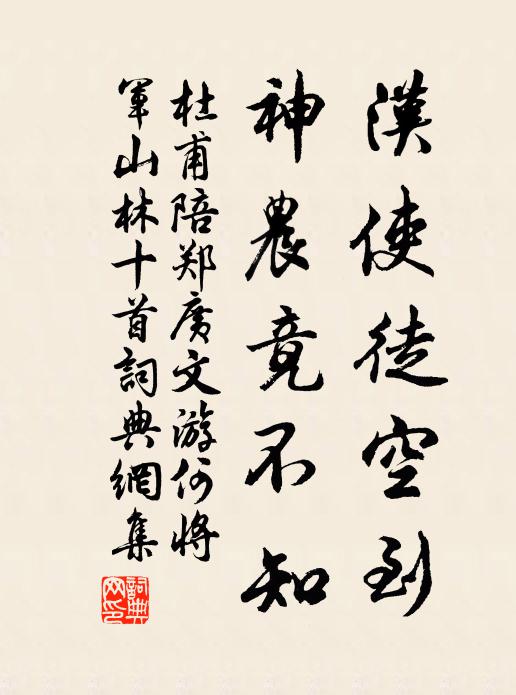 漢使徒空到
神農竟不知
杜甫陪郑廣文游何將
軍山林十首詞典網集
詞典網印